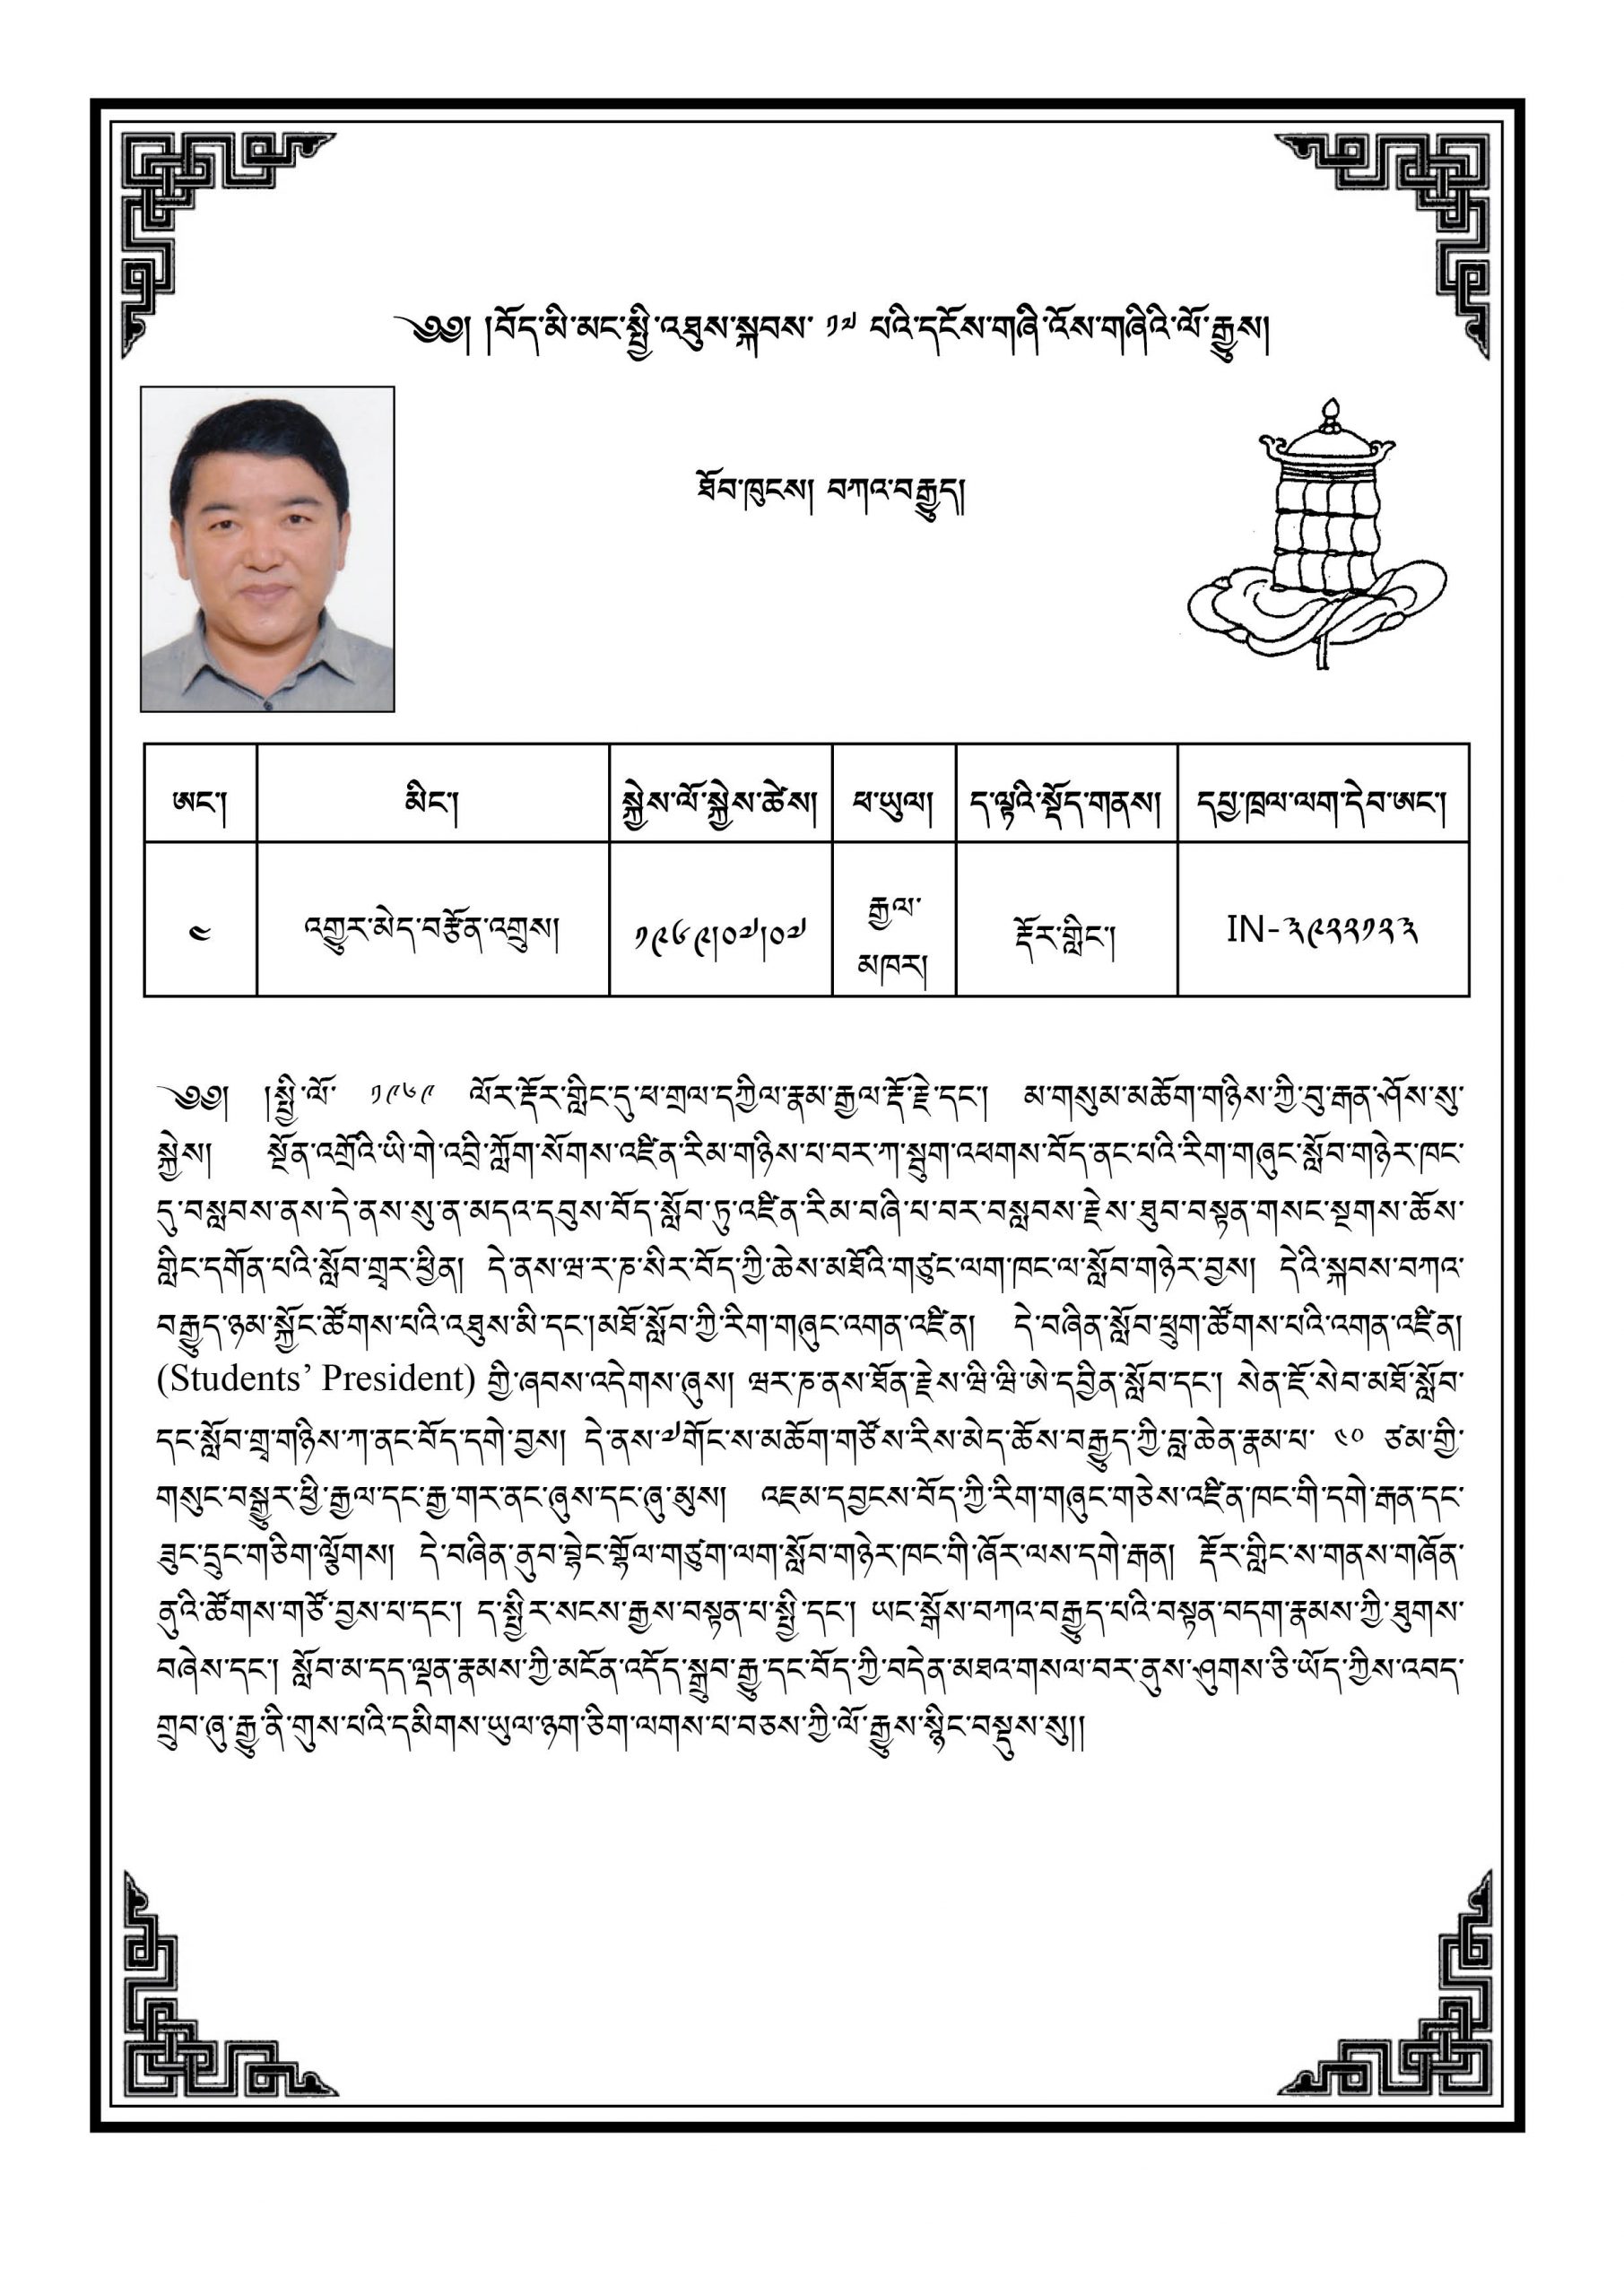 ༄༅། །བོད་མི་མང་སྤྱི་འཐུས་སྐབས་ ༡༧ པའི་དངོས་གཞི་འོས་གཞིའི་ལོ་རྒྱུས།
ཐོབ་ཁུངས། བཀའ་བརྒྱུད།
ཨང་། མིང་། སྐྱེས་ལོ་སྐྱེས་ཚེས། ཕ་ཡུལ། ད་ལྟའི་སྡོད་གནས། དཔྱ་ཁྲལ་ལག་དེབ་ཨང་།
༤ འགྱུར་མེད་བརྩོན་འགྲུས། ༡༩༦༩།༠༧།༠༧ རྒྱལ་མཁར། རྡོར་གླིང་། IN-༣༩༢༢༡༢༣
༄༅། །སྤྱི་ལོ་ ༡༩༦༩ ལོར་རྡོར་གླིང་དུ་ཕ་གྲལ་དཀྱིལ་རྣམ་རྒྱལ་རྡོ་རྗེ་དང་། མ་གསུམ་མཆོག་གཉིས་ཀྱི་བུ་རྒན་ཤོས་སུ་
སྐྱེས། སྔོན་འགྲོའི་ཡི་གེ་འབྲི་ཀློག་སོགས་འཛིན་རིམ་གཉིས་པ་བར་ཀ་སྦུག་འཕགས་བོད་ནང་པའི་རིག་གཞུང་སློབ་གཉེར་ཁང་
དུ་བསླབས་ནས་དེ་ནས་སུ་ན་མདའ་དབུས་བོད་སློབ་ཏུ་འཛིན་རིམ་བཞི་པ་བར་བསླབས་རྗེས་ཐུབ་བསྟན་གསང་སྔགས་ཆོས་
གླིང་དགོན་པའི་སློབ་གྲྭར་ཕྱིན། དེ་ནས་ཝ་ར་ཎ་སིར་བོད་ཀྱི་ཆེས་མཐོའི་གཙུང་ལག་ཁང་ལ་སློབ་གཉེར་བྱས། དེའི་སྐབས་བཀའ་
བརྒྱུད་ཉམ་སྐྱོང་ཚོགས་པའི་འཐུས་མི་དང་།མཐོ་སློབ་ཀྱི་རིག་གཞུང་འགན་འཛིན། དེ་བཞིན་སློབ་ཕྲུག་ཚོགས་པའི་འགན་འཛིན།
(Students’ President) གྱི་ཞབས་འདེགས་ཞུས། ཝར་ཎ་ནས་ཐོན་རྗེས་ཝི་ཝི་ཨེ་དབྱིན་སློབ་དང་། སེན་ཇོ་སེབ་མཐོ་སློབ་
དང་སློབ་གྲྭ་གཉིས་ཀ་ནང་བོད་དགེ་བྱས། དེ་ནས་༧གོང་ས་མཆོག་གཙོས་རིས་མེད་ཆོས་བརྒྱུད་ཀྱི་བླ་ཆེན་རྣམ་པ་ ༤༠ ཙམ་གྱི་
གསུང་བསྒྱུར་ཕྱི་རྒྱལ་དང་རྒྱ་གར་ནང་ཞུས་དང་ཞུ་མུས། འཇམ་དབྱངས་བོད་ཀྱི་རིག་གཞུང་གཅེས་འཛིན་ཁང་གི་དགེ་རྒན་དང་
ཟུང་དྲུང་གཅིག་ལྕོགས། དེ་བཞིན་ནུབ་སྟེང་སྟོལ་གཙུག་ལག་སློབ་གཉེར་ཁང་གི་ཞོར་ལས་དགེ་རྒན། རྡོར་གླིང་ས་གནས་གཞོན་
ནུའི་ཚོགས་གཙོ་བྱས་པ་དང་། ད་སྤྱིར་སངས་རྒྱས་བསྟན་པ་སྤྱི་དང་། ཡང་སྒོས་བཀའ་བརྒྱུད་པའི་བསྟན་བདག་རྣམས་ཀྱི་ཐུགས་
བཞེས་དང་། སློབ་མ་དད་ལྡན་རྣམས་ཀྱི་མངོན་འདོད་སྒྲུབ་རྒྱུ་དང་བོད་ཀྱི་བདེན་མཐའ་གསལ་བར་ནུས་ཤུགས་ཅི་ཡོད་ཀྱིས་འབད་
གྲུབ་ཞུ་རྒྱུ་ནི་གུས་པའི་དམིགས་ཡུལ་ཉག་ཅིག་ལགས་པ་བཅས་ཀྱི་ལོ་རྒྱུས་སྙིང་བསྡུས་སུ།།